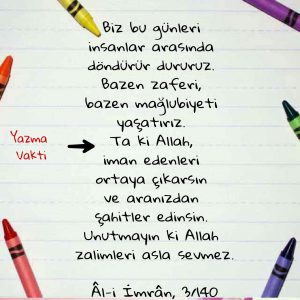 Biz bu günleri
insanlar arasında
döndürür dururuz.
Bazen zaferi,
bazen mağlubiyeti
yaşatırız.
Ta ki Allah,
iman edenleri
ortaya çıkarsın
ve aranızdan
şahitler edinsin.
Unutmayın ki Allah
zalimleri asla sevmez.
Âl-i İmrân, 3/140
Yazma
Vakti